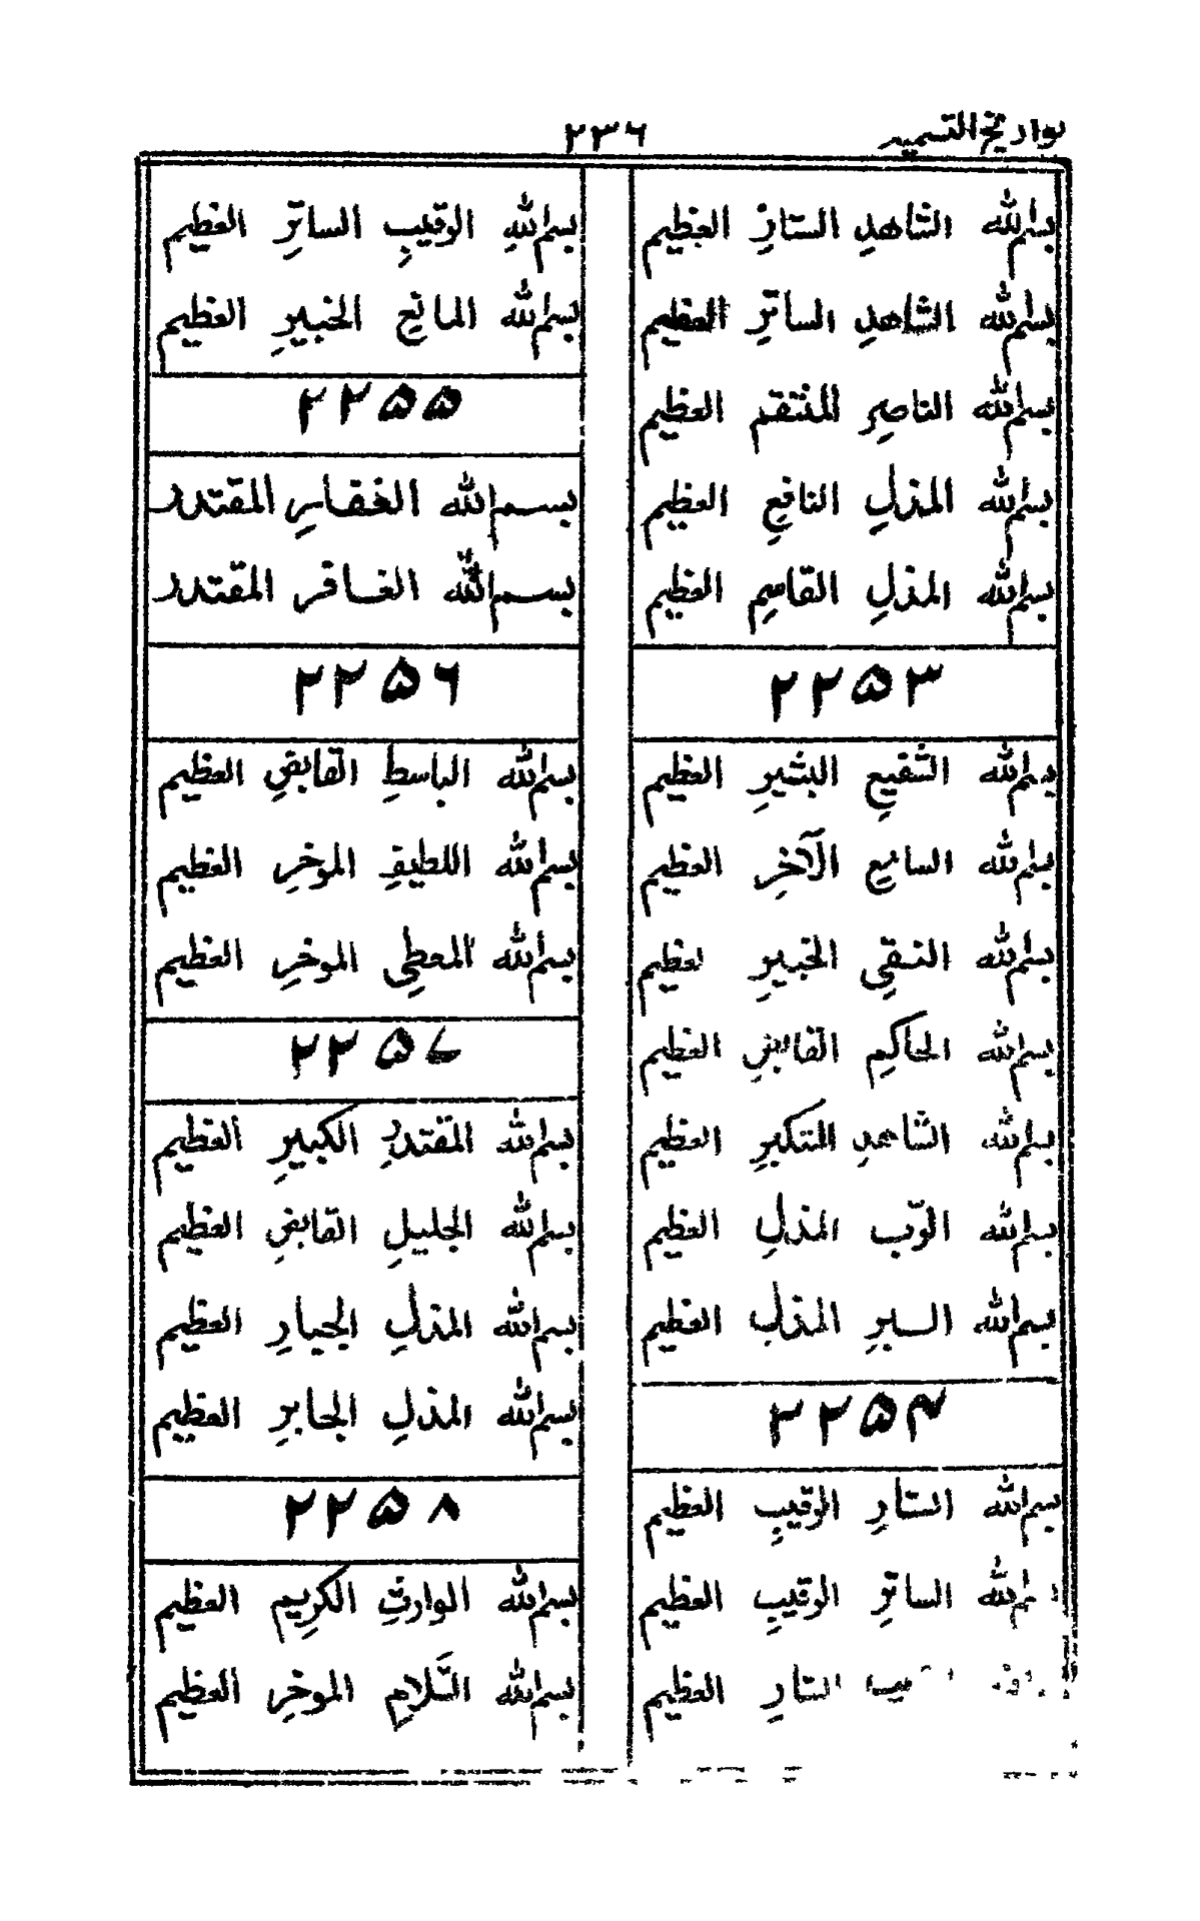 تواریخ التسمیه
۲۳۶
بسم الله الشاهدِ الستارِ العظیم
بسم الله الشاهدِ الساترِ العظیم
بسم الله الناصرِ المنتقم العظیم
بسم الله المذلِ النافعِ العظیم
بسم الله المذلِ القاسمِ العظیم
۲۲۵۳
بسم الله الشفیعِ البشیرِ العظیم
بسم الله السامعِ الآخرِ العظیم
بسم الله النقیِ الخبیرِ لعظیم
بسم الله الحاکمِ القابضِ العظیم
بسم الله الشاهدِ المتکبرِ العظیم
بسم الله الرّب المذلِ العظیم
بسم الله البرِ المذلِ العظیم
۲۲۵۴
بسم الله الستارِ الرقیبِ العظیم
الله الساترِ الرقیبِ العظیم
الستارِ العظیم
بسم اللهِ الرقیبِ الساترِ العظیم
بسم الله المانعِ الخبیرِ العظیم
۲۲۵۵
بسم الله الغفارِ المقتدر
بسم الله الغافر المقتدر
۲۲۵۶
بسم الله الباسطِ القابضِ العظیم
بسم الله اللطیفِ الموخرِ العظیم
بسم الله المعطیِ الموخرِ العظیم
۲۲۵۷
بسم الله المقتدرِ الکبیرِ العظیم
بسم الله الجلیلِ القابضِ العظیم
بسم الله المذلِ الجبارِ العظیم
بسم الله المذلِ الجابرِ العظیم
۲۲۵۸
بسم الله الوارثِ الکریمِ العظیم
بسم الله السَّلامِ الموخرِ العظیم